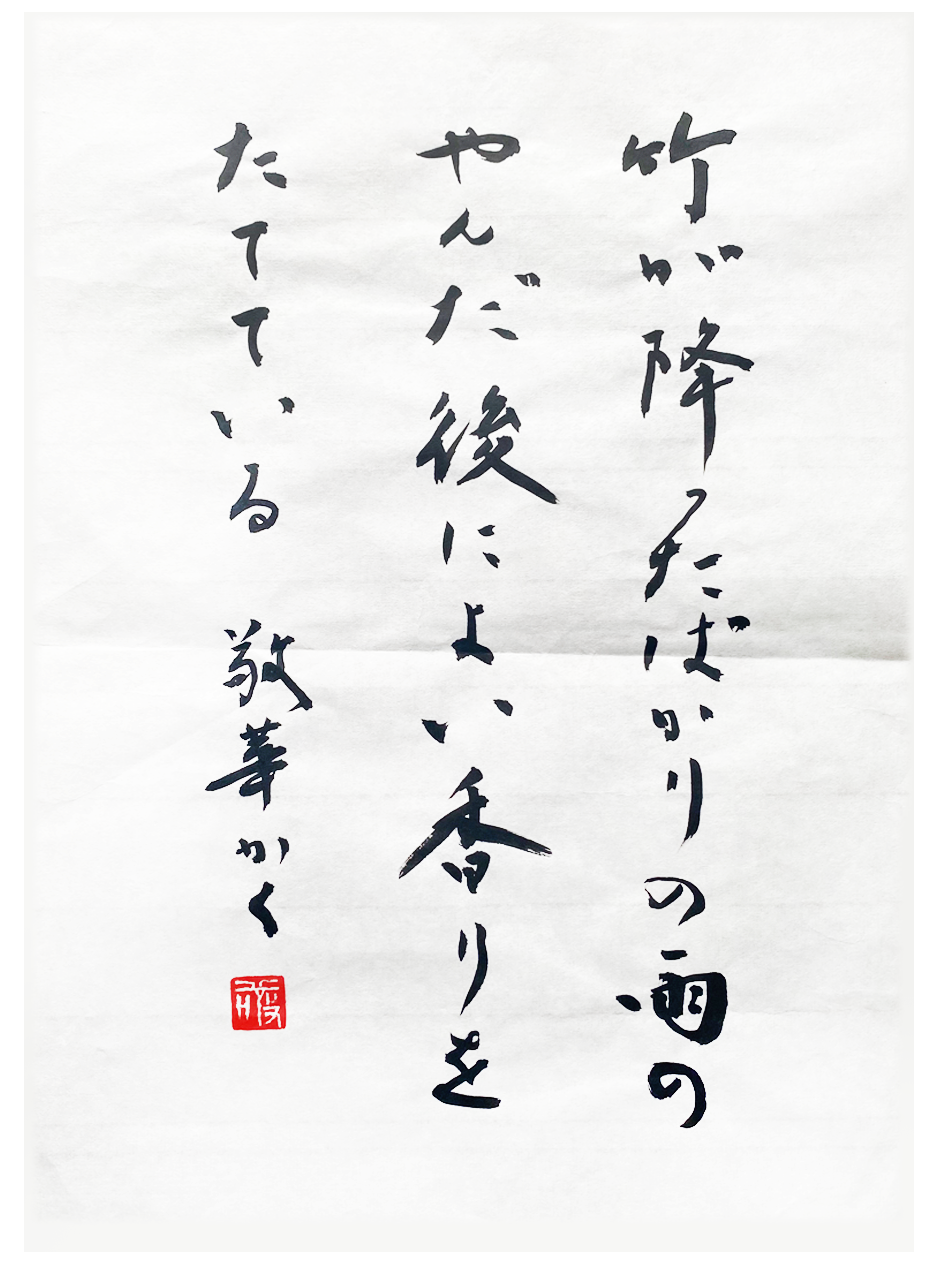 竹が降ったばかりの雨の
やんだ後によい香りを
たてている 敬華かく